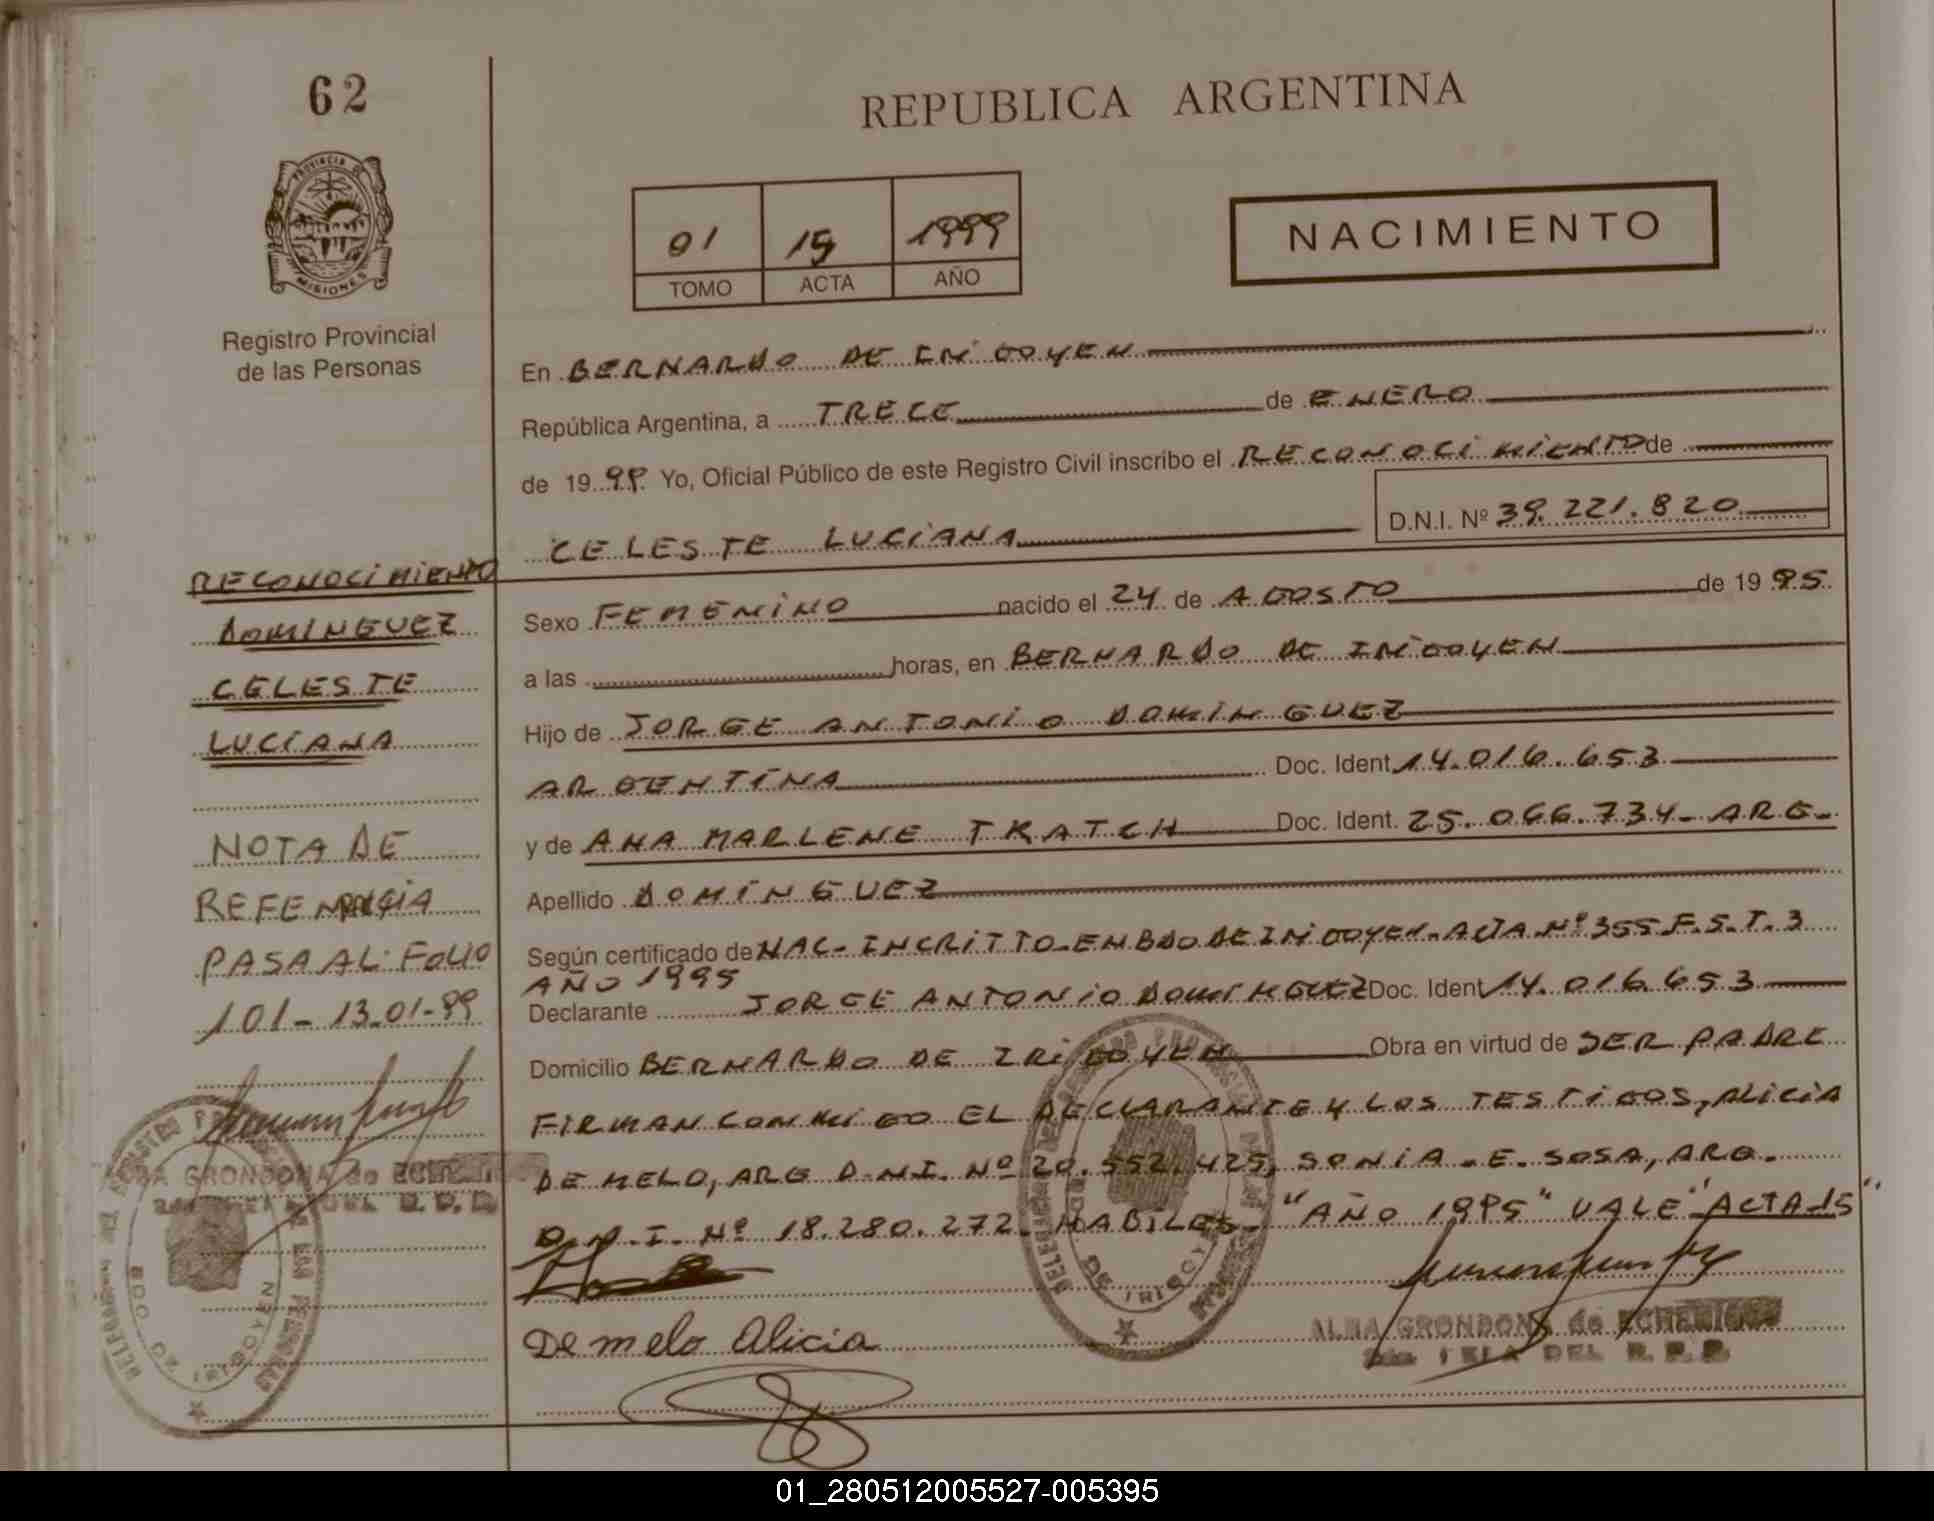 62
REPUBLICA ARGENTINA
PROVINCIA DE
MISIONES
Registro Provincial
de las Personas
01 15 1999
TOMO ACTA AÑO
NACIMIENTO
En BERNARDO DE IRIGOYEN
República Argentina, a TRECE de ENERO
de 1999 Yo, Oficial Público de este Registro Civil inscribo el RECONOCIMIENTO de
CELESTE LUCIANA D.N.I. Nº 39.221.820
Sexo FEMENINO nacido el 24 de AGOSTO de 1995
a las horas, en BERNARDO DE IRIGOYEN
Hijo de JORGE ANTONIO DOMINGUEZ
ARGENTINA Doc. Ident 14.016.653
y de ANA MARLENE TKATCH Doc. Ident. 25.066.734- ARG-
Apellido DOMINGUEZ
Según certificado de NAC- INCRITTO-EN BDO DE IRIGOYEN-ACTA-Nº355 F.S.T.3
AÑO 1995
Declarante JORGE ANTONIO DOMINGUEZ Doc. Ident 14.016.653
Domicilio BERNARDO DE IRIGOYEN Obra en virtud de SER PADRE
FIRMAN CONMIGO EL DECLARANTE Y LOS TESTIGOS, ALICIA
DE MELO, ARG D.N.I. Nº 20.552.425, SONIA.E. SOSA, ARG.
D.N.I. Nº 18.280.272 HABILES- "AÑO 1995" VALE "ACTA 15"
De melo Alicia
ALBA GRONDONA de
DEL R. P. P.
RECONOCIMIENTO
DOMINGUEZ
CELESTE
LUCIANA
NOTA DE
REFERENCIA
PASA AL FOLIO
101- 13-01-99
GRONDONA de
DEL R. P. P.
DE IRIGOYEN
BDO DE IRIGOYEN
01_280512005527-005395